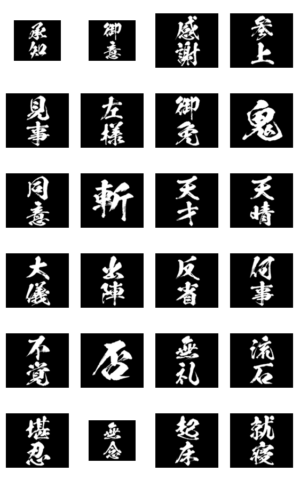 承知
御意
感謝
参上
見事
左様
御免
鬼
同意
斬
天才
天晴
大儀
出陣
反省
何事
不覚
否
無礼
流石
堪忍
無念
起床
就寝